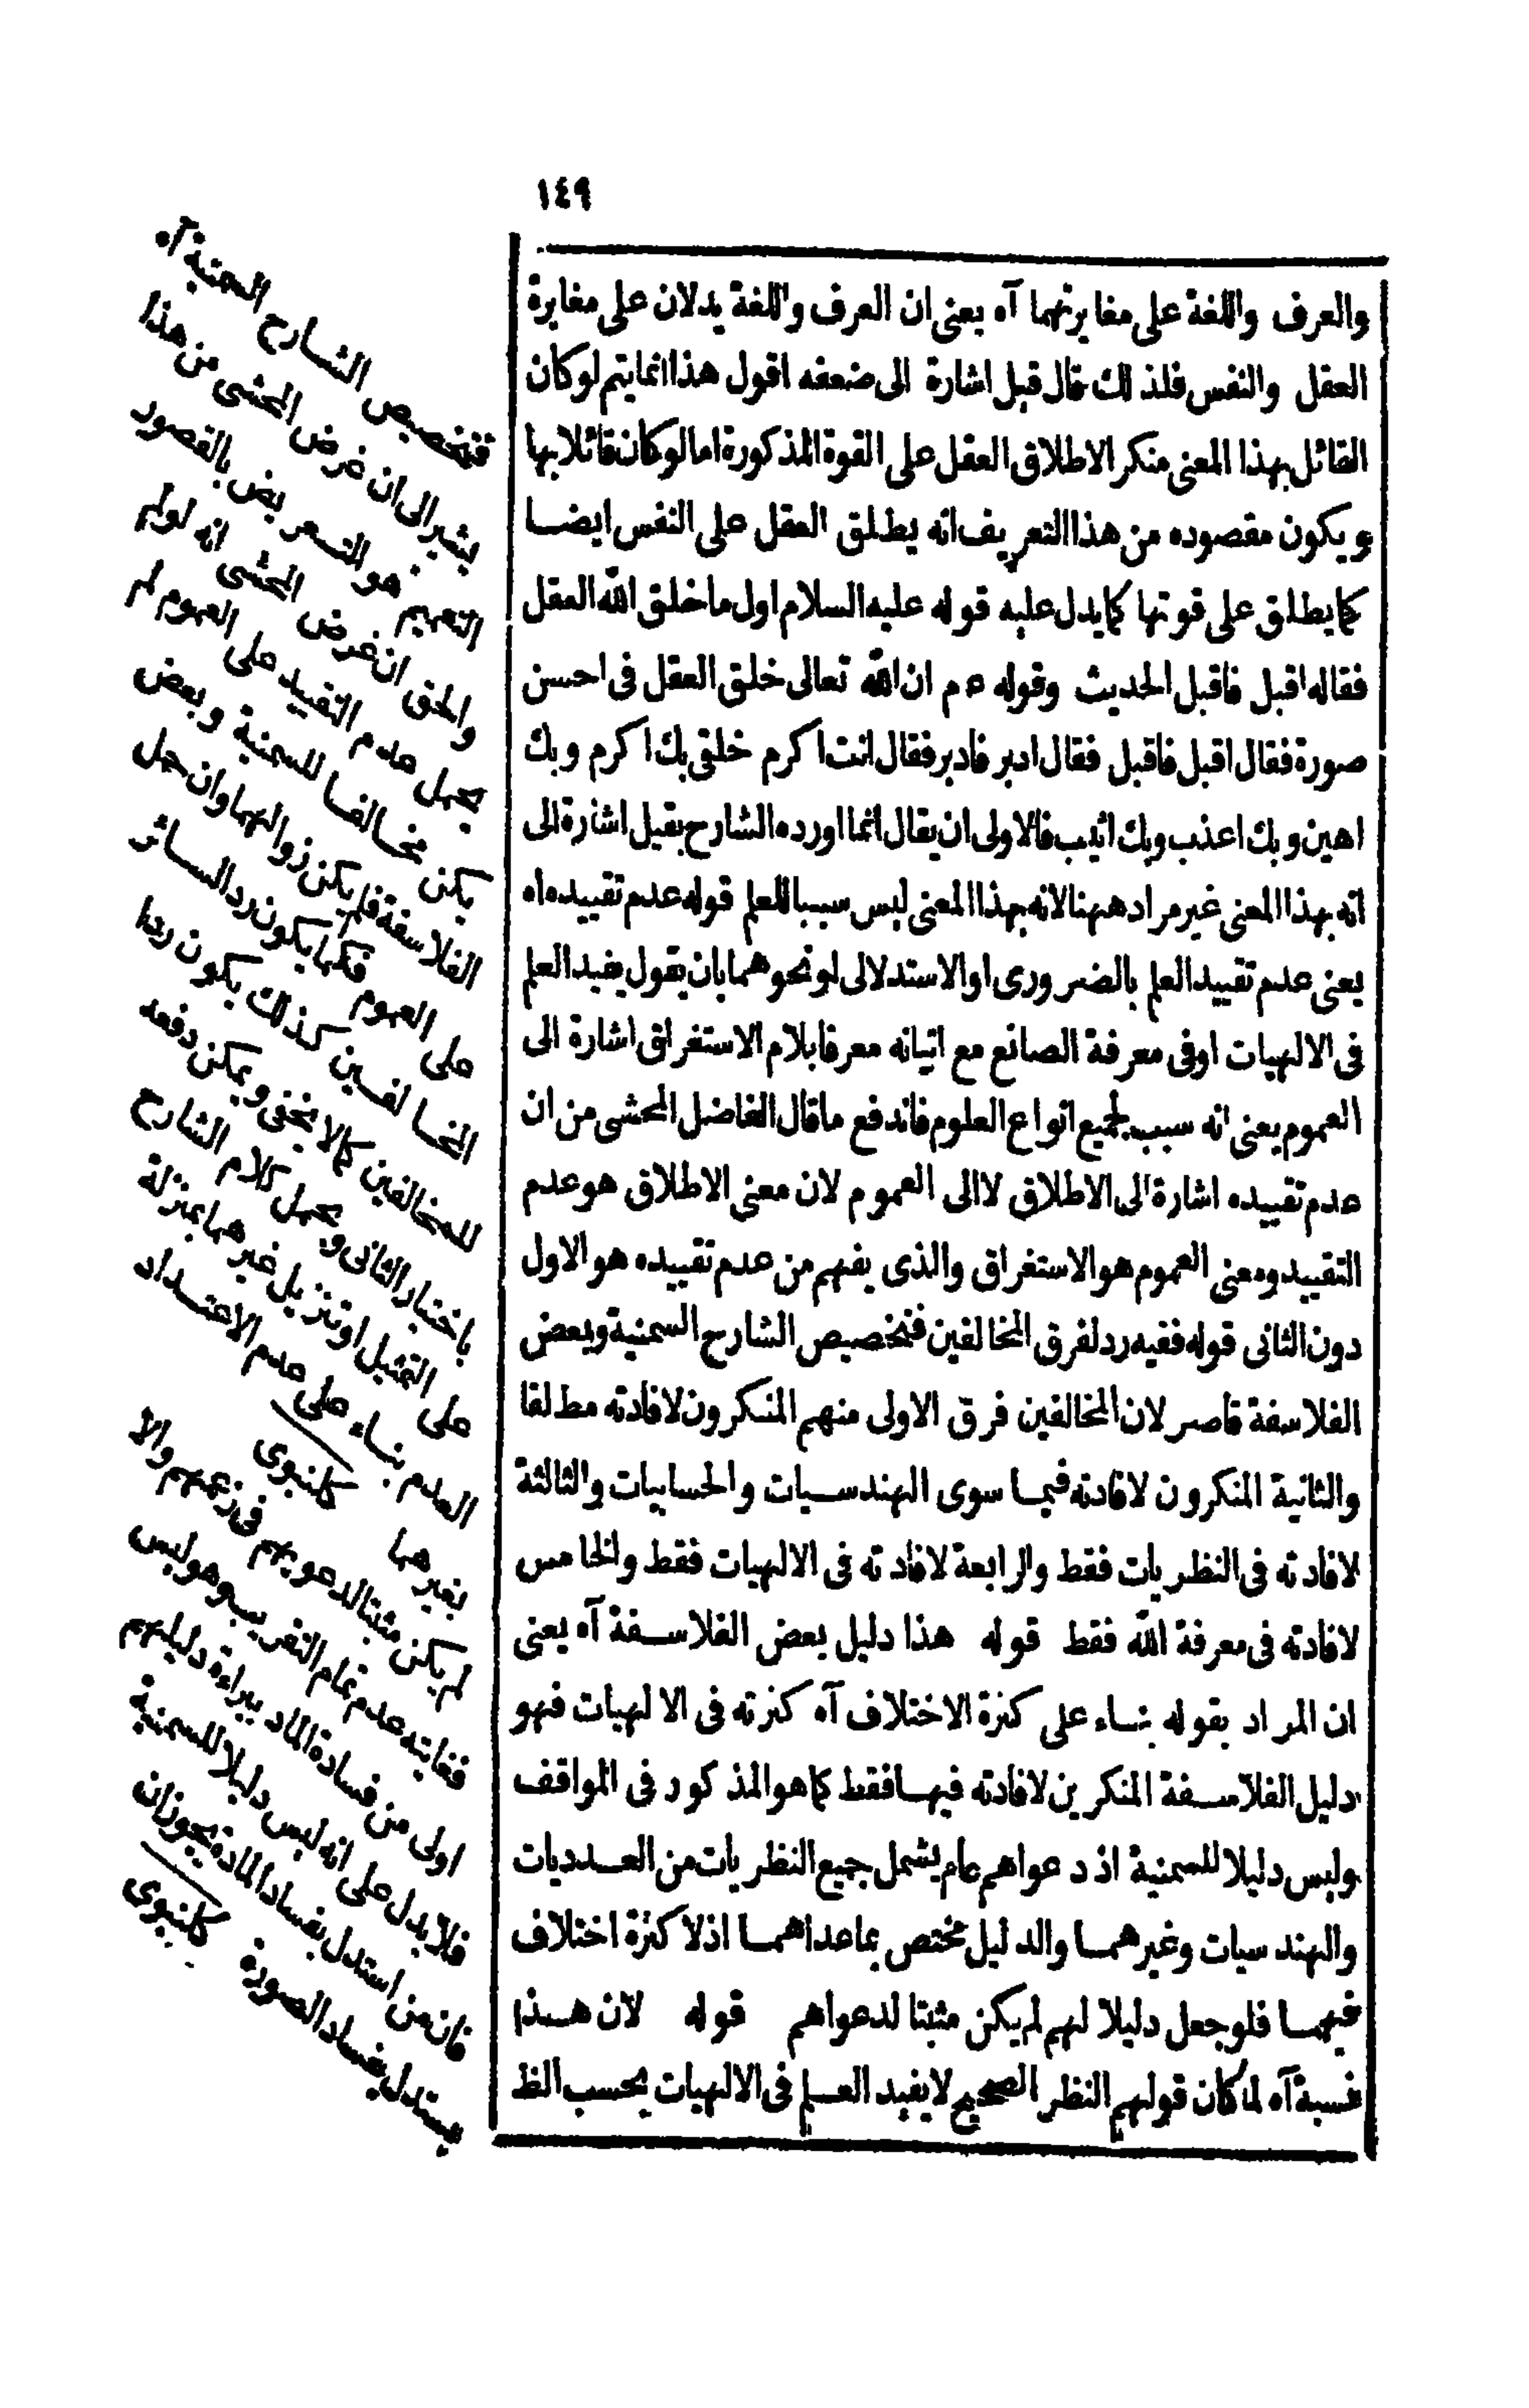 ١٤٩
والعرف واللغة على مغايرتهما آه يعنى ان العرف واللغة يدلان على مغايرة
العقل والنفس فلذلك قال قيل اشارة الى ضعفه اقول هذا انما يتم لو كان
القائل بهذا المعنى منكر الاطلاق العقل على القوة المذكورة اما لو كان قائلا بها
ويكون مقصوده من هذا التعريف انه يطلق العقل على النفس ايضا
كما يطلق على قوتها كما يدل عليه قوله عليه السلام اول ما خلق الله العقل
فقاله اقبل فاقبل الحديث وقوله عم ان الله تعالى خلق العقل فى احسن
صورة فقال اقبل فاقبل فقال ادبر فادبر فقال انت اكرم خلقى بك اكرم وبك
اهين وبك اعذب وبك اثيب فالاولى ان يقال انما اورده الشارح بقيل اشارة الى
انه بهذا المعنى غير مراد ههنا لانه بهذا المعنى ليس سببا للعلم قوله عدم تقييده اه
يعنى عدم تقييد العلم بالضرورى او الاستدلالى او نحوهما بان يقول يفيد العلم
فى الالهيات او فى معرفة الصانع مع اتيانه معرفا بلام الاستغراق اشارة الى
العموم يعنى انه سبب لجميع انواع العلوم فاندفع ما قال الفاضل المحشى من ان
عدم تقييده اشارة الى الاطلاق لا الى العموم لان معنى الاطلاق هو عدم
التقييد ومعنى العموم هو الاستغراق والذى يفهم من عدم تقييده هو الاول
دون الثانى قوله ففيه رد لفرق المخالفين فتخصيص الشارح السمنية وبعض
الفلاسفة قاصر لان المخالفين فرق الاولى منهم المنكرون لافادته مطلقا
والثانية المنكرون لافادته فيما سوى الهندسيات والحسابيات والثالثة
لافادته فى النظريات فقط والرابعة لافادته فى الالهيات فقط والخامس
لافادته فى معرفة الله فقط قوله هذا دليل بعض الفلاسفة آه يعنى
ان المراد بقوله بناء على كثرة الاختلاف آه كثرته فى الالهيات فهو
دليل الفلاسفة المنكرين لافادته فيها فقط كما هو المذكور فى المواقف
وليس دليلا للسمنية اذ دعواهم عام يشمل جميع النظريات من العدديات
والهندسيات وغيرهما والدليل مختص بما عداهما اذ لا كثرة اختلاف
فيهما فلو جعل دليلا لهم لم يكن مثبتا لدعواهم قوله لان هذا
نسبة آه لما كان قولهم النظر الصحيح لا يفيد العلم فى الالهيات بحسب الظ
فتخصيص الشارح السمنية آه
يشير الى ان غرض المحشى من هذا
التعميم هو التعريض بالقصور
والحق ان غرض المحشى انه لو لم
يحمل عدم التقييد على العموم لم
يكن مخالفا للسمنية وبعض
الفلاسفة فلم يكن رد الهما وان حمل
على العموم فكما يكون رد السائر
المخالفين كذلك يكون ردا
للمخالفين كما لا يخفى ويمكن دفعه
باختيار الثانى ويحمل كلام الشارح
على التمثيل او تنزيل غيرهما بمنزلة
العدم بناء على عدم الاعتداد
بغيرهما كلنبوى
لم يكن مثبتا لدعويهم فى زعمهم والا
فغايته عدم تمام التقريب وهو ليس
اولى من فساد المادة ببراءة دليلهم
فلا يدل على انه ليس دليلا للسمنية
فان من استدل بفساد المادة يجوز ان
يستدل بفساد الصورة كلنبوى